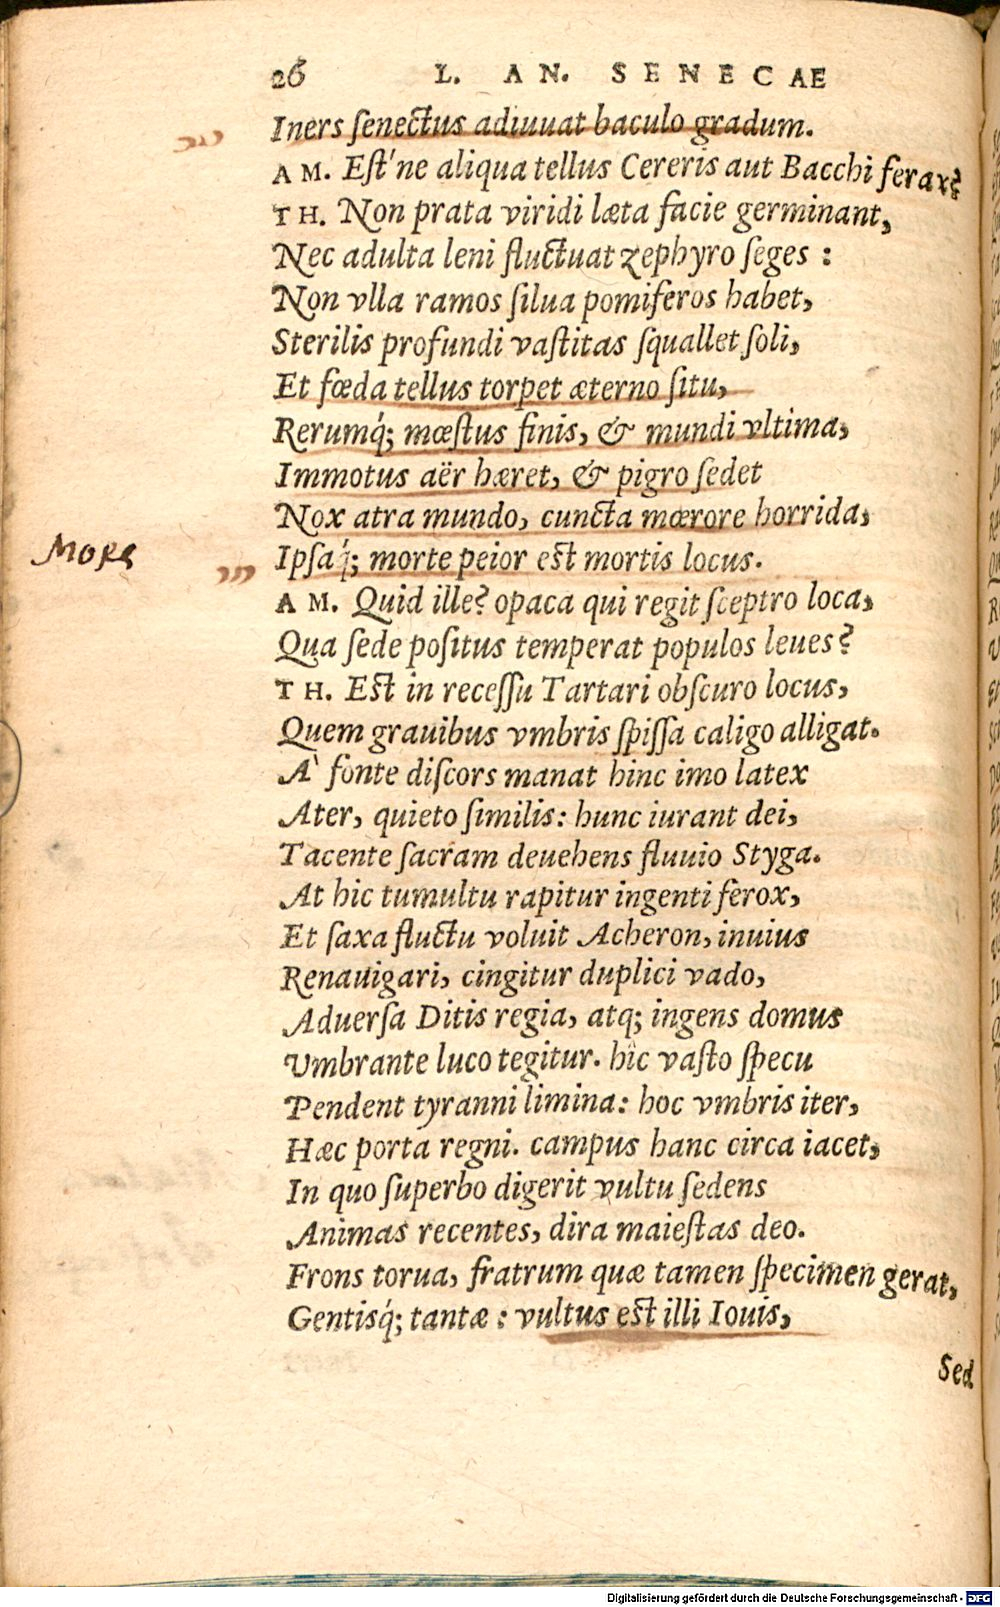 26 L. AN. SENECAE
Iners ſenectus adiuuat baculo gradum.
AM. Eſt'ne aliqua tellus Cereris aut Bacchi ferax?
TH. Non prata viridi læta facie germinant,
Nec adulta leni fluctuat zephyro ſeges :
Non vlla ramos ſilua pomiferos habet,
Sterilis profundi vaſtitas ſquallet ſoli,
Et fœda tellus torpet æterno ſitu,
Rerumq́; mœſtus finis, & mundi vltima,
Immotus aër hæret, & pigro ſedet
Nox atra mundo, cuncta mœrore horrida,
Mors
Ipſaq́; morte peior eſt mortis locus.
AM. Quid ille? opaca qui regit ſceptro loca,
Qua ſede poſitus temperat populos leues?
TH. Eſt in receſſu Tartari obſcuro locus,
Quem grauibus vmbris ſpiſſa caligo alligat.
A` fonte diſcors manat hinc imo latex
Ater, quieto ſimilis: hunc iurant dei,
Tacente ſacram deuehens fluuio Styga.
At hic tumultu rapitur ingenti ferox,
Et ſaxa fluctu voluit Acheron, inuius
Renauigari, cingitur duplici vado,
Aduerſa Ditis regia, atq; ingens domus
Vmbrante luco tegitur. hîc vaſto ſpecu
Pendent tyranni limina: hoc vmbris iter,
Hæc porta regni. campus hanc circa iacet,
In quo ſuperbo digerit vultu ſedens
Animas recentes, dira maieſtas deo.
Frons torua, fratrum quæ tamen ſpecimen gerat,
Gentisq́; tantæ : vultus eſt illi Iouis,
Sed
Digitalisierung gefördert durch die Deutsche Forschungsgemeinschaft - DFG